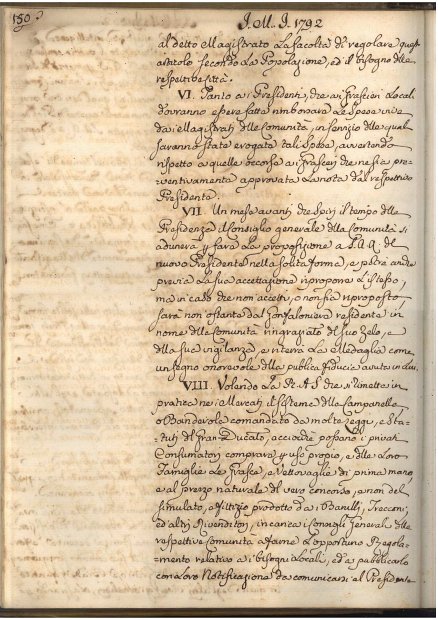 150
J. M. J. 1792
al detto Magistrato La facoltà di regolare quest
articolo secondo La Popolazione, ed il bisogno delle
respettive Città.
VI. Tanto ai Presidenti, che ai Grascieri Local
dovranno essere fatte rimborsare Le Spese vive
dai Magistrati delle Comunità, in servizio delle qual
saranno state erogate tali Spese, avvertendo
rispetto a quelle occorse ai Grascieri che ne sia pre
ventivamente approvata La nota dal respettivo
Presidente.
VII. Un mese avanti che spiri il tempo della
Presidenza il Consiglio generale della Comunità si
adunerà p fare La proposizione a del
nuovo Presidente nella solita forma, e potrà anche
previa La sua accettazione riproporre L'istesso,
ma in caso che non accetti, o non sia riproposto
sarà non ostante dal Gonfaloniere residente in
nome della Comunità ringraziato del suo Zelo, e
della sua vigilanza, e riterrà La Medaglia come
un segno onorevole della publica fiducia avuta in Lui.
VIII. Volendo La R. A. S. che si rimetta in
pratica nei Mercati il sistema della Campanella
o Banderola comandato da molte Leggi, e Sta=
tuti del Gran-Ducato, acciocchè possano i privati
Consumatori comprare p uso proprio, e delle Loro
Famiglie Le Grasce, e Vettovaglie di prima mano,
e al prezzo naturale del vero concorso, e non del
simulato, e fittizio prodotto dai Barulli, Trecconi,
ed altri Rivenditori, incarica i Consigli Generali delle
respettive Comunità a farne L'opportuno Regola=
mento relativo ai bisogni Locali, ed a pubblicarlo
con Loro Notificazione da comunicarsi al Presidente